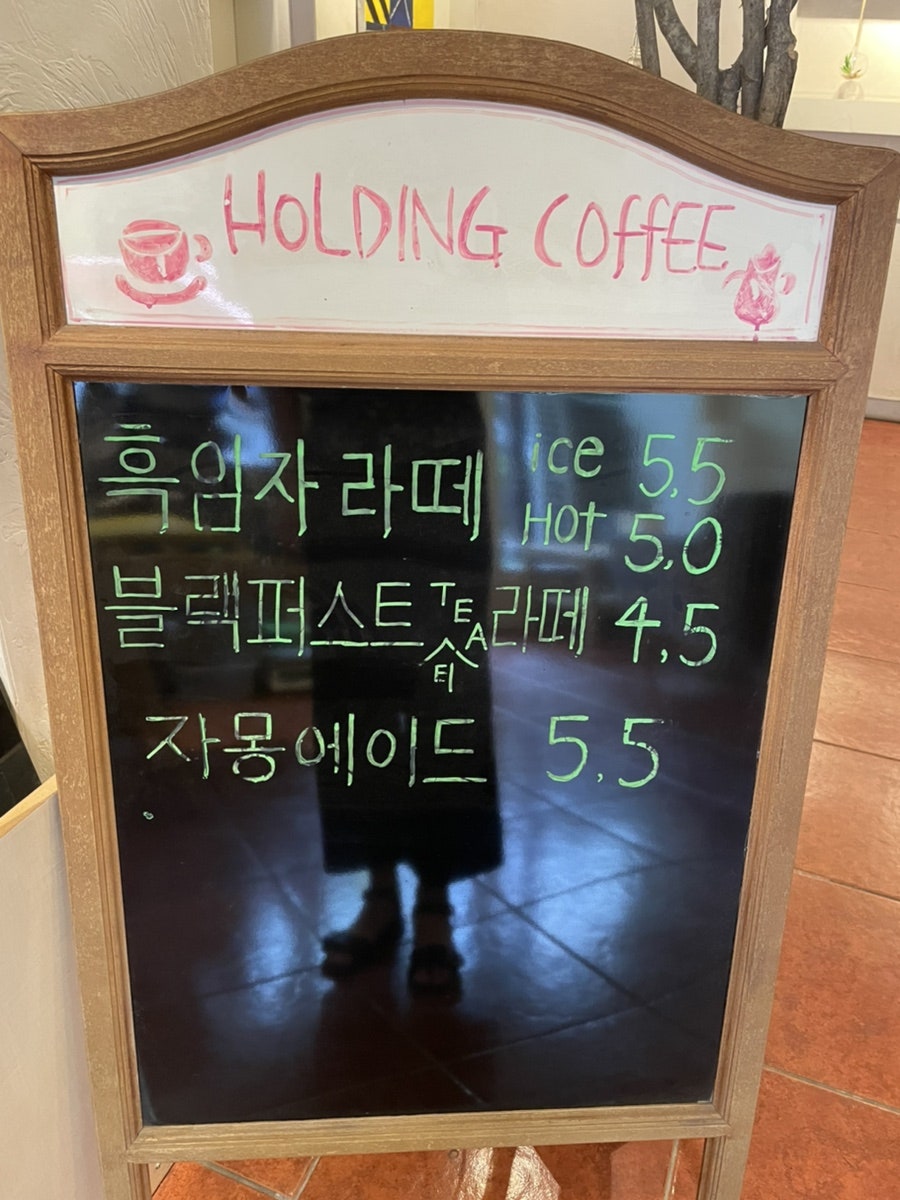 HOLDING COFFEE
흑임자 라떼 ice 5.5
HOT 5.0
블랙퍼스트 TEA 라떼 4.5
티
자몽에이드 5.5